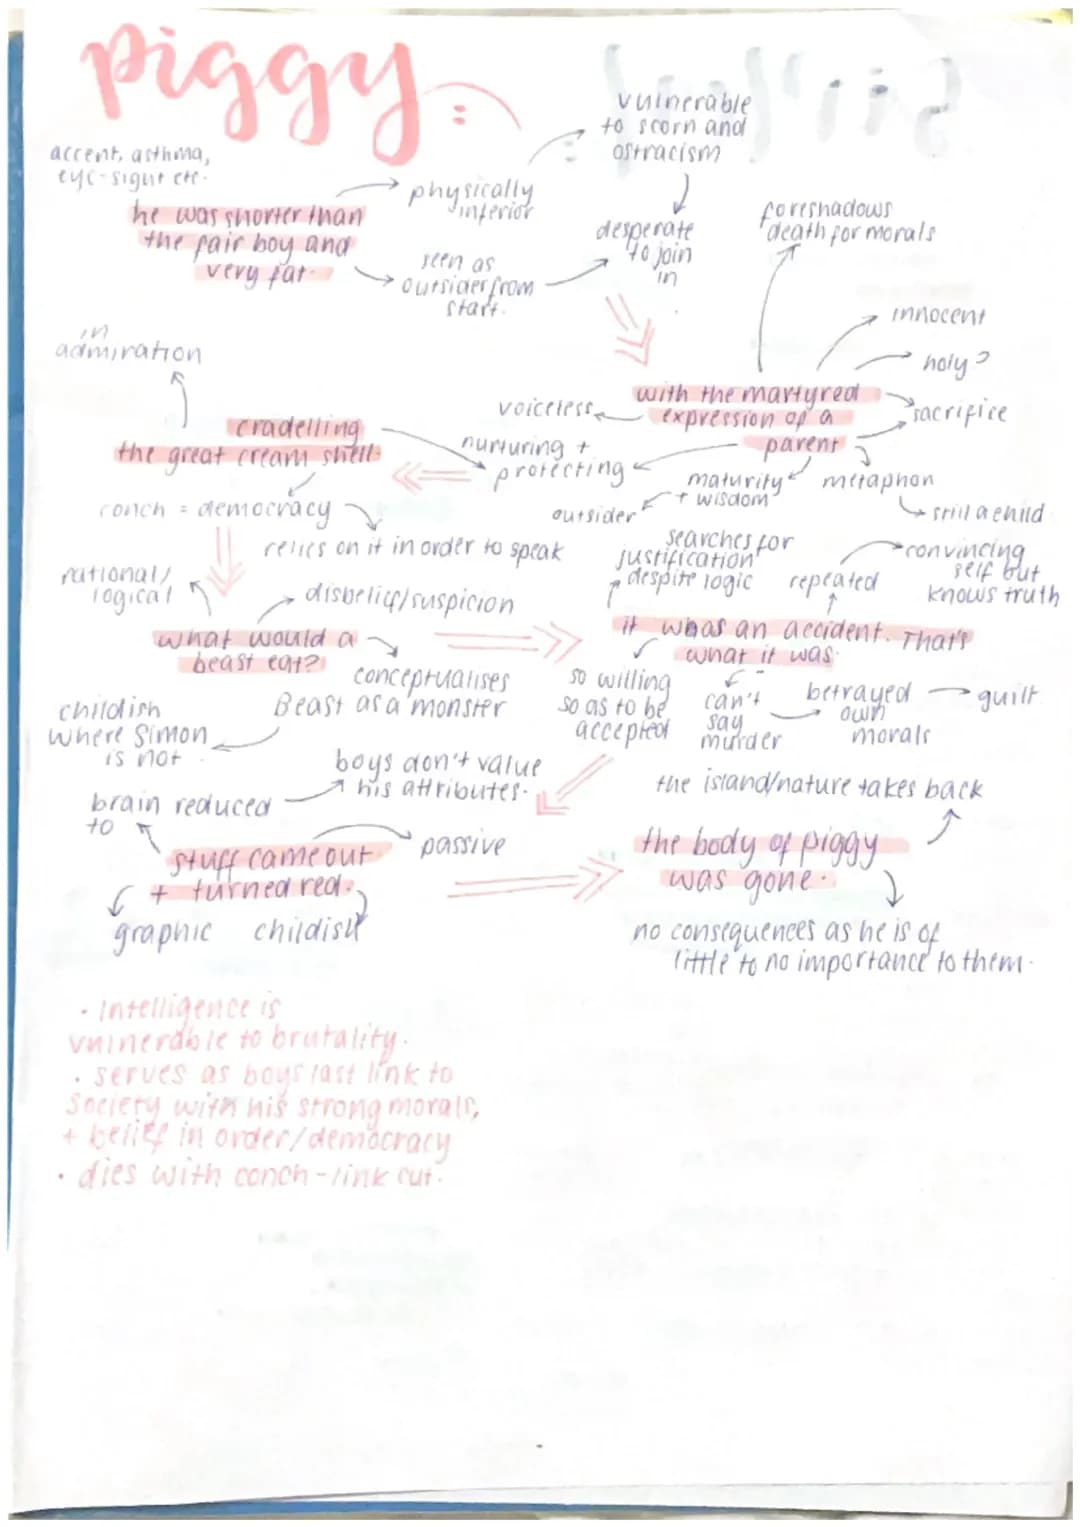 piggy:
accent, asthma,
eye-sight etc.
he was shorter than
the fair boy and
very fat.
physically
inferior
seen as
outsider from
start.
vulnerable
to scorn and
ostracism
desperate
to join
in
foreshadows
death for morals
innocent
holy?
sacrifice
with the martyred
expression of a
parent
voiceless
nurturing +
protecting
maturity
+ wisdom
outsider
metaphor
still a child
in
admiration
cradelling
the great cream shell.
conch = democracy
relies on it in order to speak
rational/
logical
disbelief/suspicion
what would a
beast eat?
conceptualises
Beast as a monster
childish
where Simon
is not
searches for
justification
despite logic
repeated
convincing
self but
knows truth
it whas an accident. That's
what it was.
so willing
so as to be
accepted
can't
say
murder
betrayed
own
morals
guilt
boys don't value
his attributes.
brain reduced
to
stuff came out
+ turned red.
passive
graphic
childish
the island/nature takes back
the body of piggy
was gone.
no consequences as he is of
little to no importance to them.
• Intelligence is
vulnerable to brutality.
• serves as boys last link to
society with his strong morals,
+ belief in order/democracy
• dies with conch - link cut.